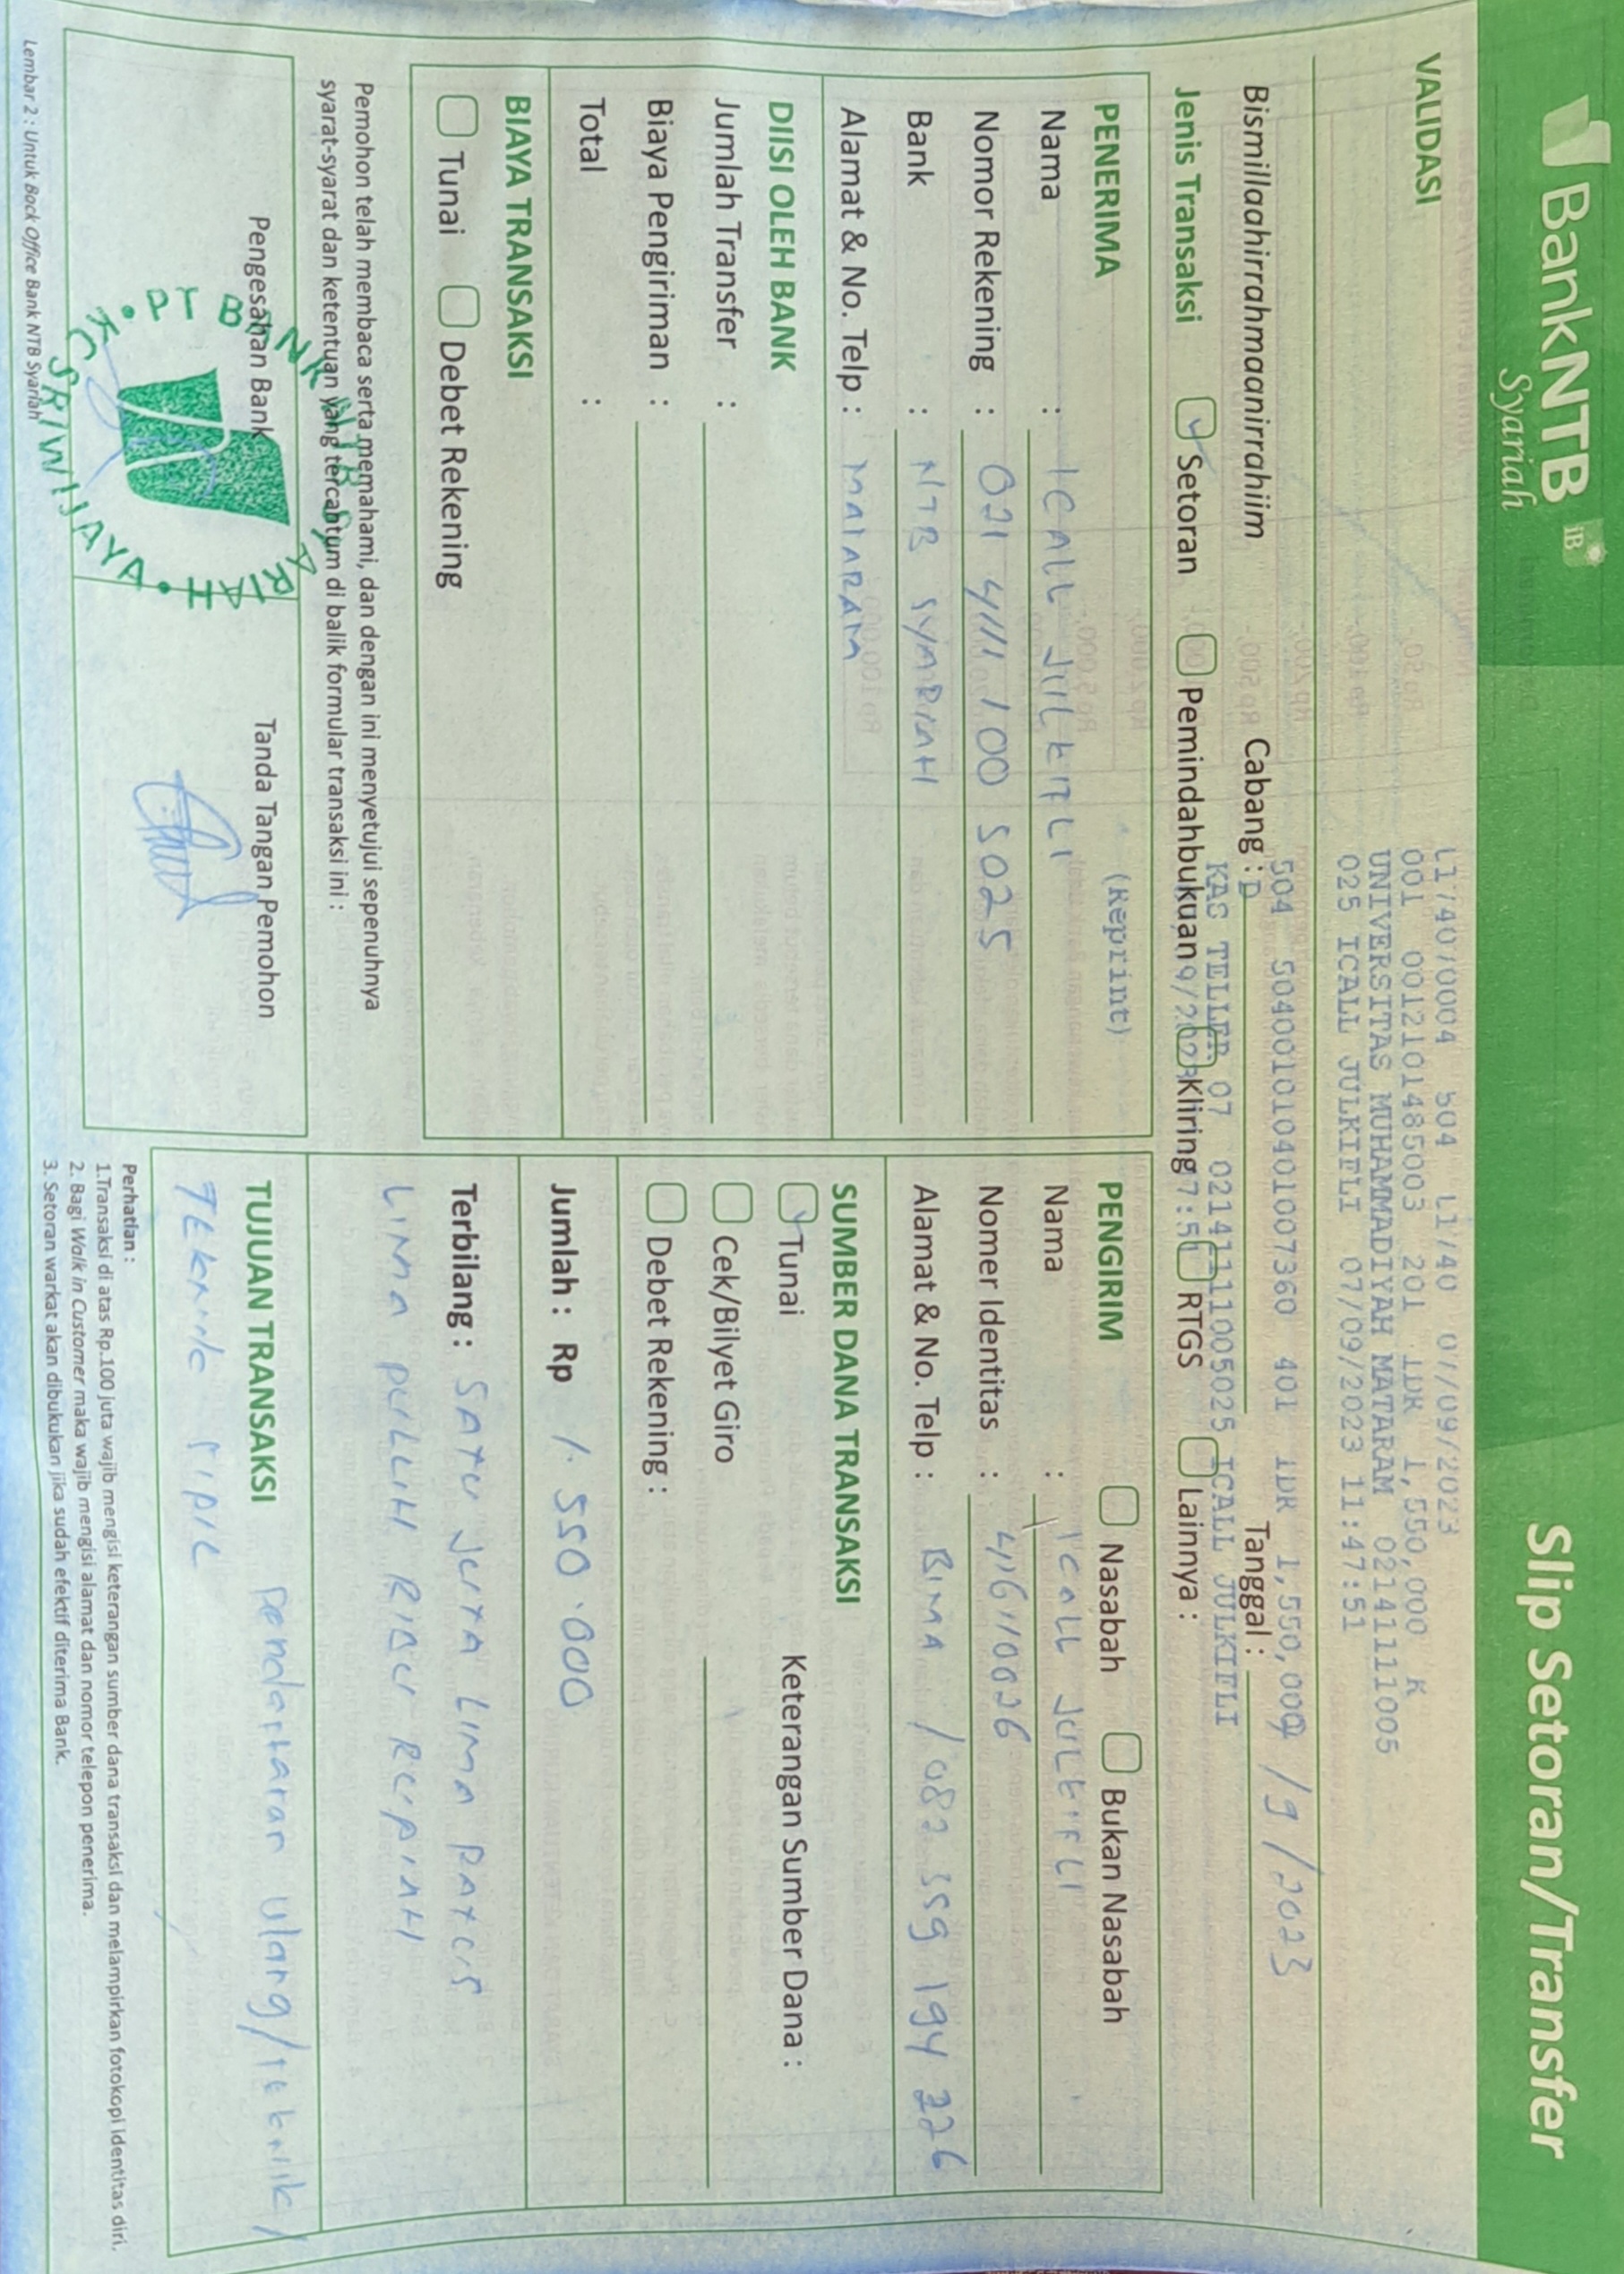 BankNTB iB
Syariah
Slip Setoran/Transfer
VALIDASI
L1740/0004 504 L1740 07/09/2023
001 0012101485003 201 IDR 1,550,000 K
UNIVERSITAS MUHAMMADIYAH MATARAM 0214111005
025 ICALL JULKIFLI 07/09/2023 11:47:51
504 5040010104010007360 401 IDR 1,550,000
Bismillaahirrahmaanirrahiim Cabang : D Tanggal : /9/2023
KAS TELLER 07 02141111005025 ICALL JULKIFLI
Jenis Transaksi Setoran Pemindahbukuan Kliring RTGS Lainnya :
(Reprint)
PENERIMA
Nama : ICALL JULKIFLI
Nomor Rekening : 021 4111 100 5025
Bank : NTB SYARIAH
Alamat & No. Telp : MATARAM
DIISI OLEH BANK
Jumlah Transfer :
Biaya Pengiriman :
Total :
BIAYA TRANSAKSI
Tunai Debet Rekening
Pemohon telah membaca serta memahami, dan dengan ini menyetujui sepenuhnya
syarat-syarat dan ketentuan yang tercantum di balik formular transaksi ini :
Pengesahan Bank
Tanda Tangan Pemohon
PT BANK NTB SYARIAH
SRIWIJAYA
Lembar 2 : Untuk Back Office Bank NTB Syariah
PENGIRIM Nasabah Bukan Nasabah
Nama : ICALL JULKIFLI
Nomer Identitas : 416110026
Alamat & No. Telp : BIMA / 082 359 194 226
SUMBER DANA TRANSAKSI
Tunai Keterangan Sumber Dana :
Cek/Bilyet Giro
Debet Rekening :
Jumlah : Rp 1.550.000
Terbilang : SATU JUTA LIMA RATUS
LIMA PULUH RIBU RUPIAH
TUJUAN TRANSAKSI Pendaftaran ulang/Teknik/
TEKNIK SIPIL
Perhatian :
1.Transaksi di atas Rp.100 juta wajib mengisi keterangan sumber dana transaksi dan melampirkan fotokopi identitas diri.
2. Bagi Walk in Customer maka wajib mengisi alamat dan nomor telepon penerima.
3. Setoran warkat akan dibukukan jika sudah efektif diterima Bank.